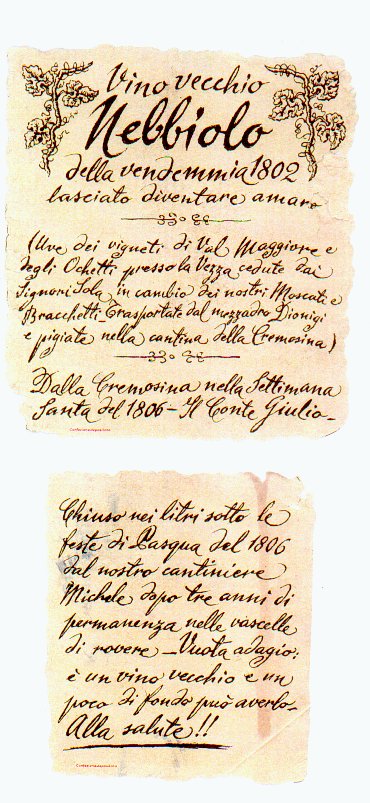 Vino vecchio
Nebbiolo
della vendemmia 1802
lasciato diventare amaro
(Uve dei vigneti di Val Maggiore e
degli Ochetti presso la Vezza cedute dai
Signori Sola, in cambio dei nostri Moscati e
Bracchetti - Trasportate dal mezzadro Dionigi
e pigiate nella cantina della Cremosina)
Dalla Cremosina nella Settimana
Santa del 1806 - Il Conte Giulio -
Confezione depositata
Chiuso nei litri sotto le
feste di Pasqua del 1806
dal nostro cantiniere
Michele dopo tre anni di
permanenza nelle vascelle
di rovere - Vuota adagio:
è un vino vecchio e un
poco di fondo può averlo -
Alla salute!!
Confezione depositata